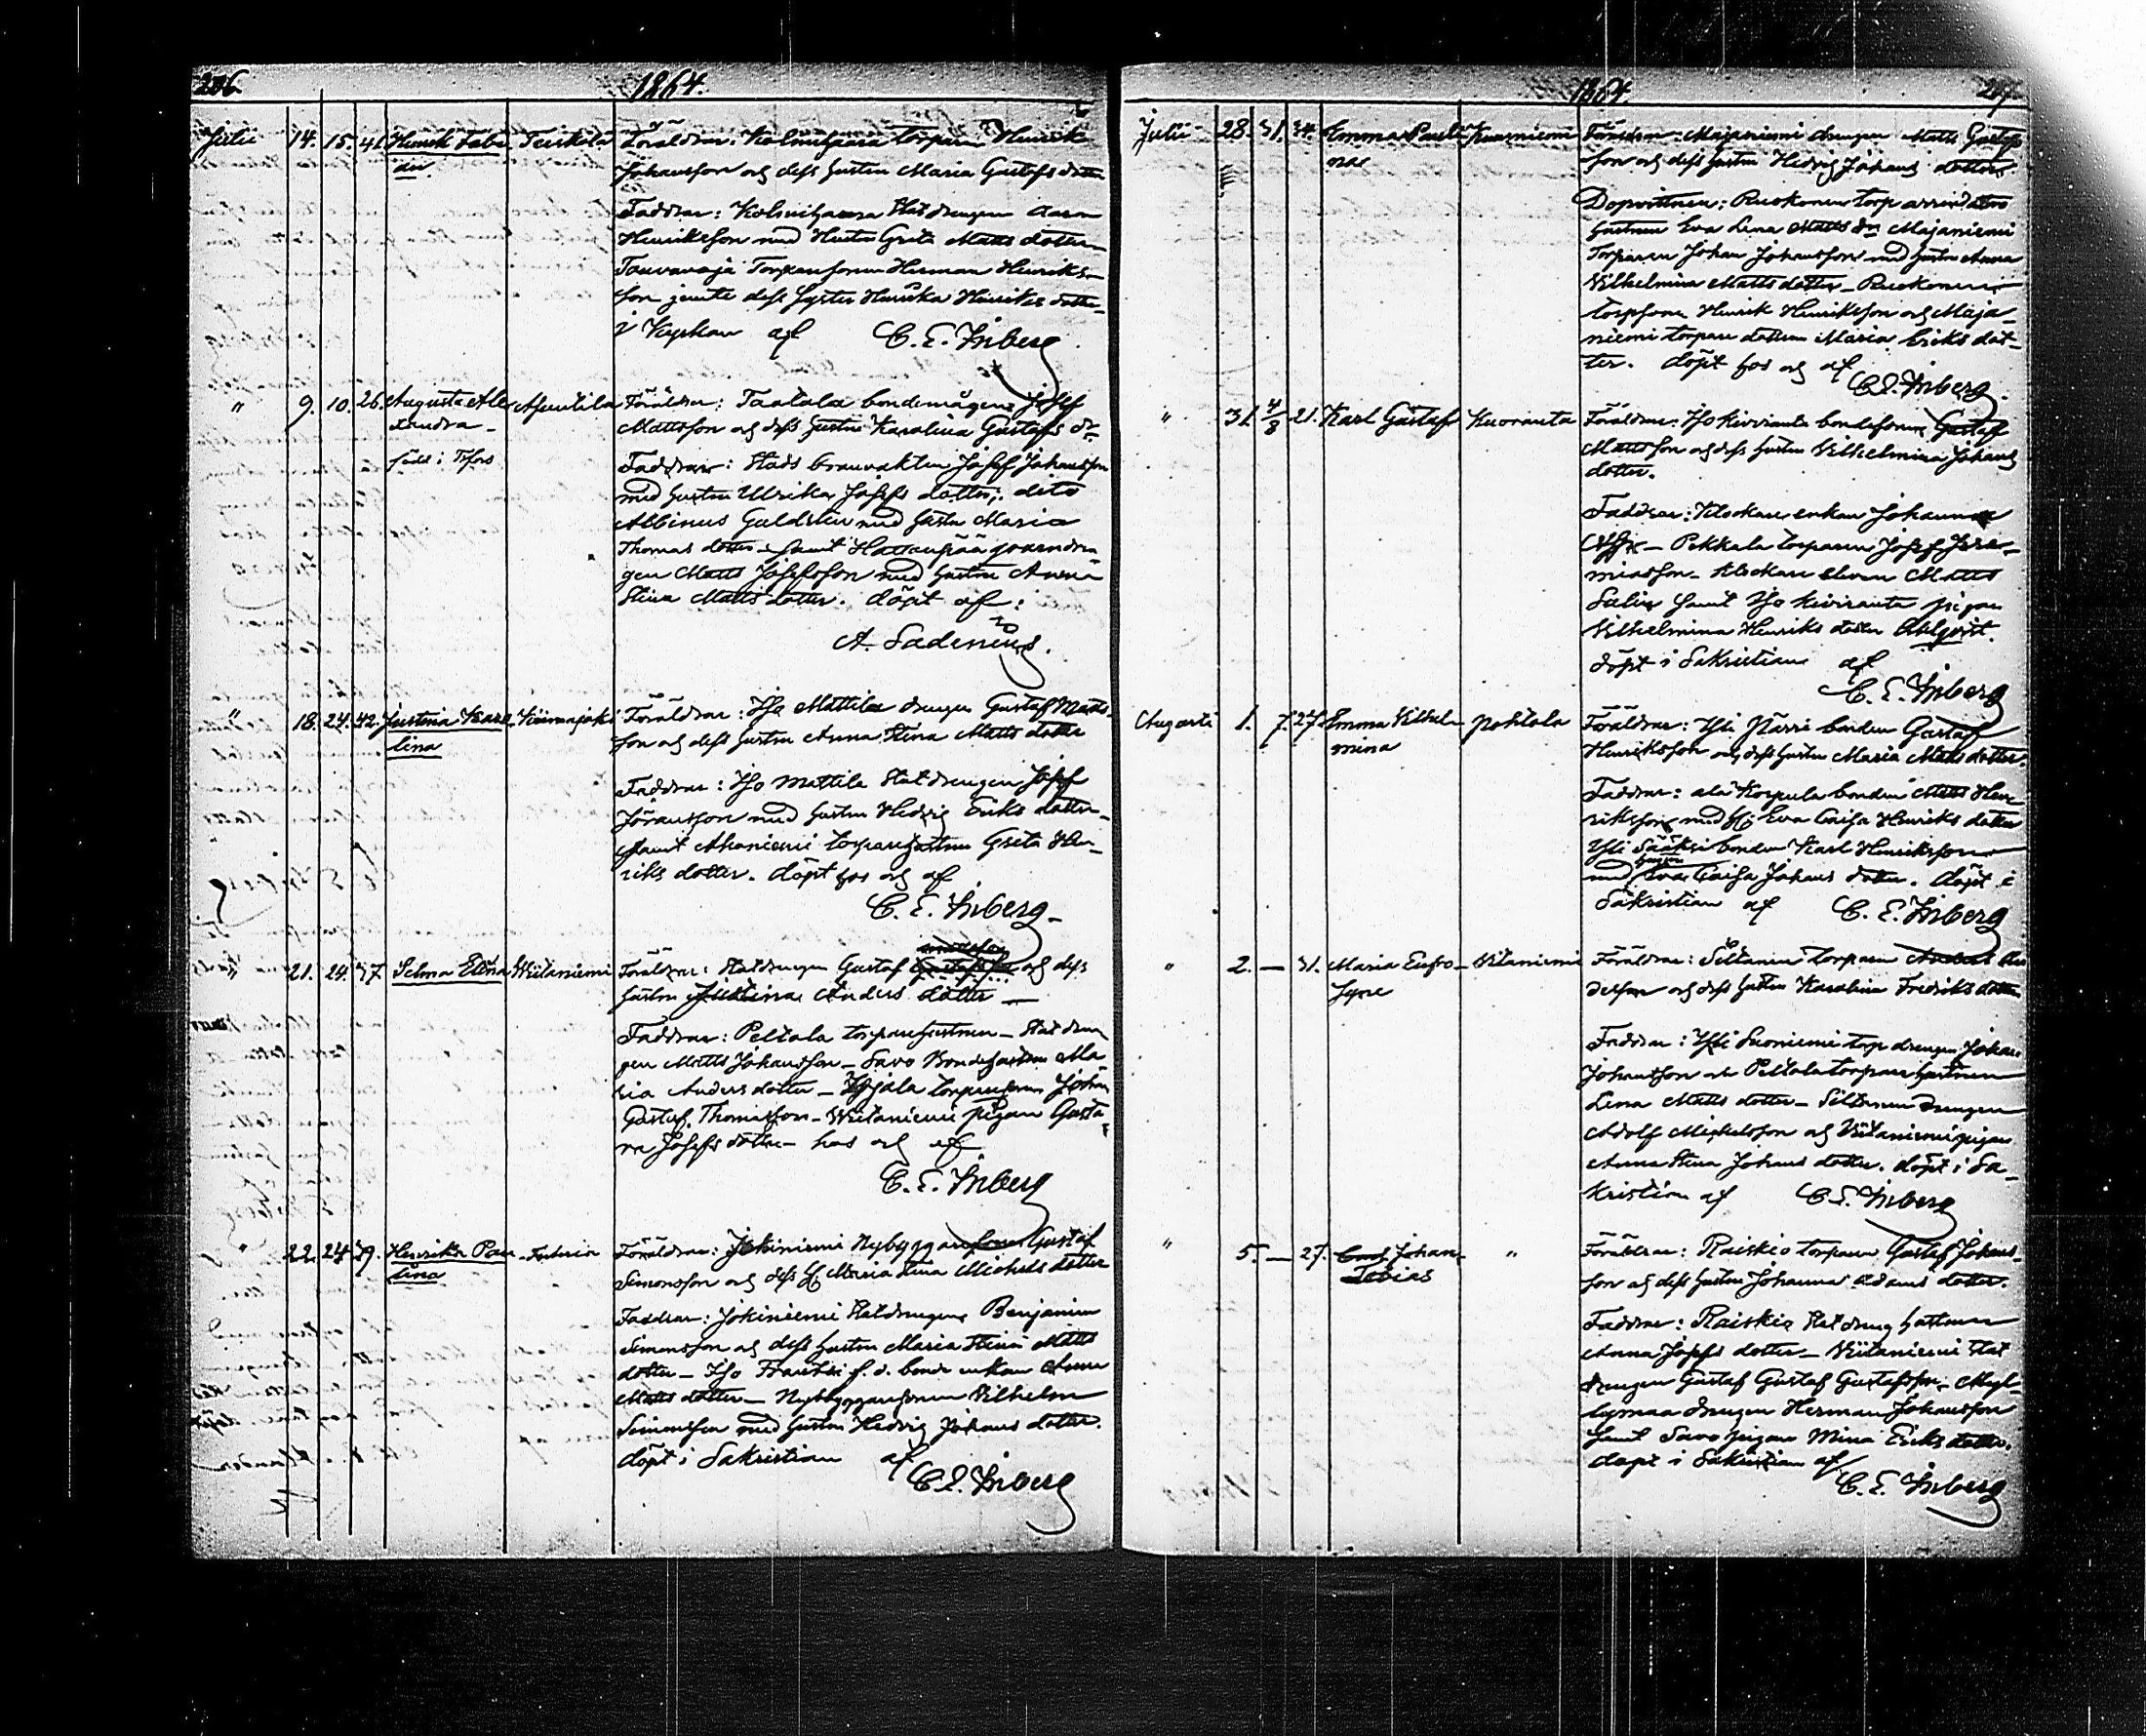 206
1864.
Julii 14. 15. 41. Henrik Fabi- Teiskola
an
Föräldrar: Kolmihaara torparen Henrik
Johansson och dess hustru Maria Gustafs dotter
Faddrar: Kolmihaara Statdrengen Aaron
Henriksson med Hustru Greta Matts dotter
Torparesonen Herman Henriks-
son jemte dess syster Henrika Henriks dotter
i Kyrkan af C. E. Inberg
" 9. 10. 26. Augusta Ale-
xandra
född i Tfors
Föräldrar: Taatala bondemågen Josef
Mattsson och dess hustru Karolina Gustafs dr
Faddrar: Stads brandvakten Josef Johansson
med hustru Ulrika Josefs dotter; dito
Albinus Guldsten med hustru Maria
Thomas dotter samt Hattanpää
gen Matts Josefsson med hustru Anna
Stina Matts dotter. döpt af:
A. Sadenius.
" 18. 24. 42. Justina Karo-
lina
Föräldrar: Iso Mattila drengen Gustaf Matts-
son och dess hustru Anna Stina Matts dotter
Faddrar: Iso Mattila Statdrengen Josef
Jöransson med hustru Hedvig Eriks dotter
samt Ahoniemi torparehustrun Greta Hen-
riks dotter. döpt hos och af
C. E. Inberg
" 21. 24. 37. Selma Elena Wiitaniemi
Föräldrar: Statdrengen Gustaf och dess
hustru Justina Anders dotter
Faddrar: Peltola torparehustrun - Statdren
gen Matts Johansson - Savo Bondehustrun Ma
ria Anders dotter - torparesonen Johan
Gustaf Thomasson - Wiitaniemi pigan Gusta
va Josefs dotter - hos och af
C. E. Inberg
" 22. 24. 39. Henrika Pau-
lina
Föräldrar: Jokiniemi Nybyggaresonen Gustaf
Simonsson och dess h; Maria Stina Michels dotter
Faddrar: Jokiniemi Statdrengen Benjamin
Simonsson och dess hustru Maria Stina Matts
dotter - Iso Frantsi f. d. bonde enkan Anna
Matts dotter - Nybyggaresonen Vilhelm
Simonsson med hustru Hedvig Johans dotter.
döpt i Sakristian af
C. E. Inberg
1864.
207
Julii 28. 31. 34. Emma Pauli-
na
Kuorniemi
Föräldrar: Majaniemi drengen Matts Gustafs
son och dess hustru Hedvig Johans dotter.
Dopvittnen: Ruokonen torp
hustrun Eva Lena Matts dr Majaniemi
Torparen Johan Johansson med hustru Anna
Vilhelmina Matts dotter - Ruokonen
torpsonen Henrik Henriksson och Maja-
niemi torpare dottern Maria Eriks dot-
ter. döpt hos och af
C. E. Inberg
" 31. 4/8 21. Karl Gustaf Kuoranta
Föräldrar: Iso Kiviranta bondesonen Gustaf
Mattsson och dess hustru Vilhelmina Johans
dotter.
Faddrar: Klockare enkan Johanna
- Pekkala torparen Josef Jere-
miasson - Klockare eleven Matts
Salin samt Iso Kiviranta pigan
Vilhelmina Henriks dotter Ahlqvist.
döpt i Sakristian af
C. E. Inberg
Augusti 1. 7. 27. Emma Vilhel-
mina
Pohtola
Föräldrar: Yli Närri bonden Gustaf
Henriksson och dess hustru Maria Matts dotter
Faddrar: ala Korpula bonden Matts Hen-
riksson med h; Eva Caisa Henriks dotter
Yli Sääksi bonden Karl Henriksson
med hustrun Eva Caisa Johans dotter. döpt i
Sakristian af C. E. Inberg
" 2. — 31. Maria Eufro-
syne
Wiitaniemi
Föräldrar: Siltanen torparen An
dersson och dess hustru Karolina Fredriks dotter
Faddrar: Yli Suoniemi torp drengen Johan
Johansson och Peltola torpare hustrun
Lena Matts dotter - Siltanen drengen
Adolf Michelsson och Wiitaniemi pigan
Anna Stina Johans dotter. döpt i Sa-
kristian af C. E. Inberg
" 5. — 27. Johan
Tobias
"
Föräldrar: Raiskio torparen Gustaf Johans-
son och dess hustru Johanna Adams dotter.
Faddrar: Raiskio Statdreng hustrun
Anna Josefs dotter - Wiitaniemi Stat
drengen Gustaf Gustaf Gustafsson - Myl-
lymaa drengen Herman Johansson
samt Savo pigan Mina Eriks dotter.
döpt i Sakristian af
C. E. Inberg